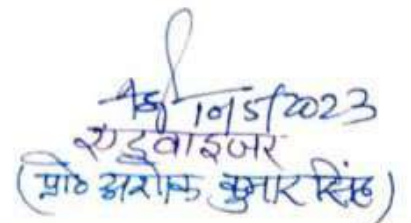 10/5/2023
एडवाइजर
(प्रो० अशोक कुमार सिंह)